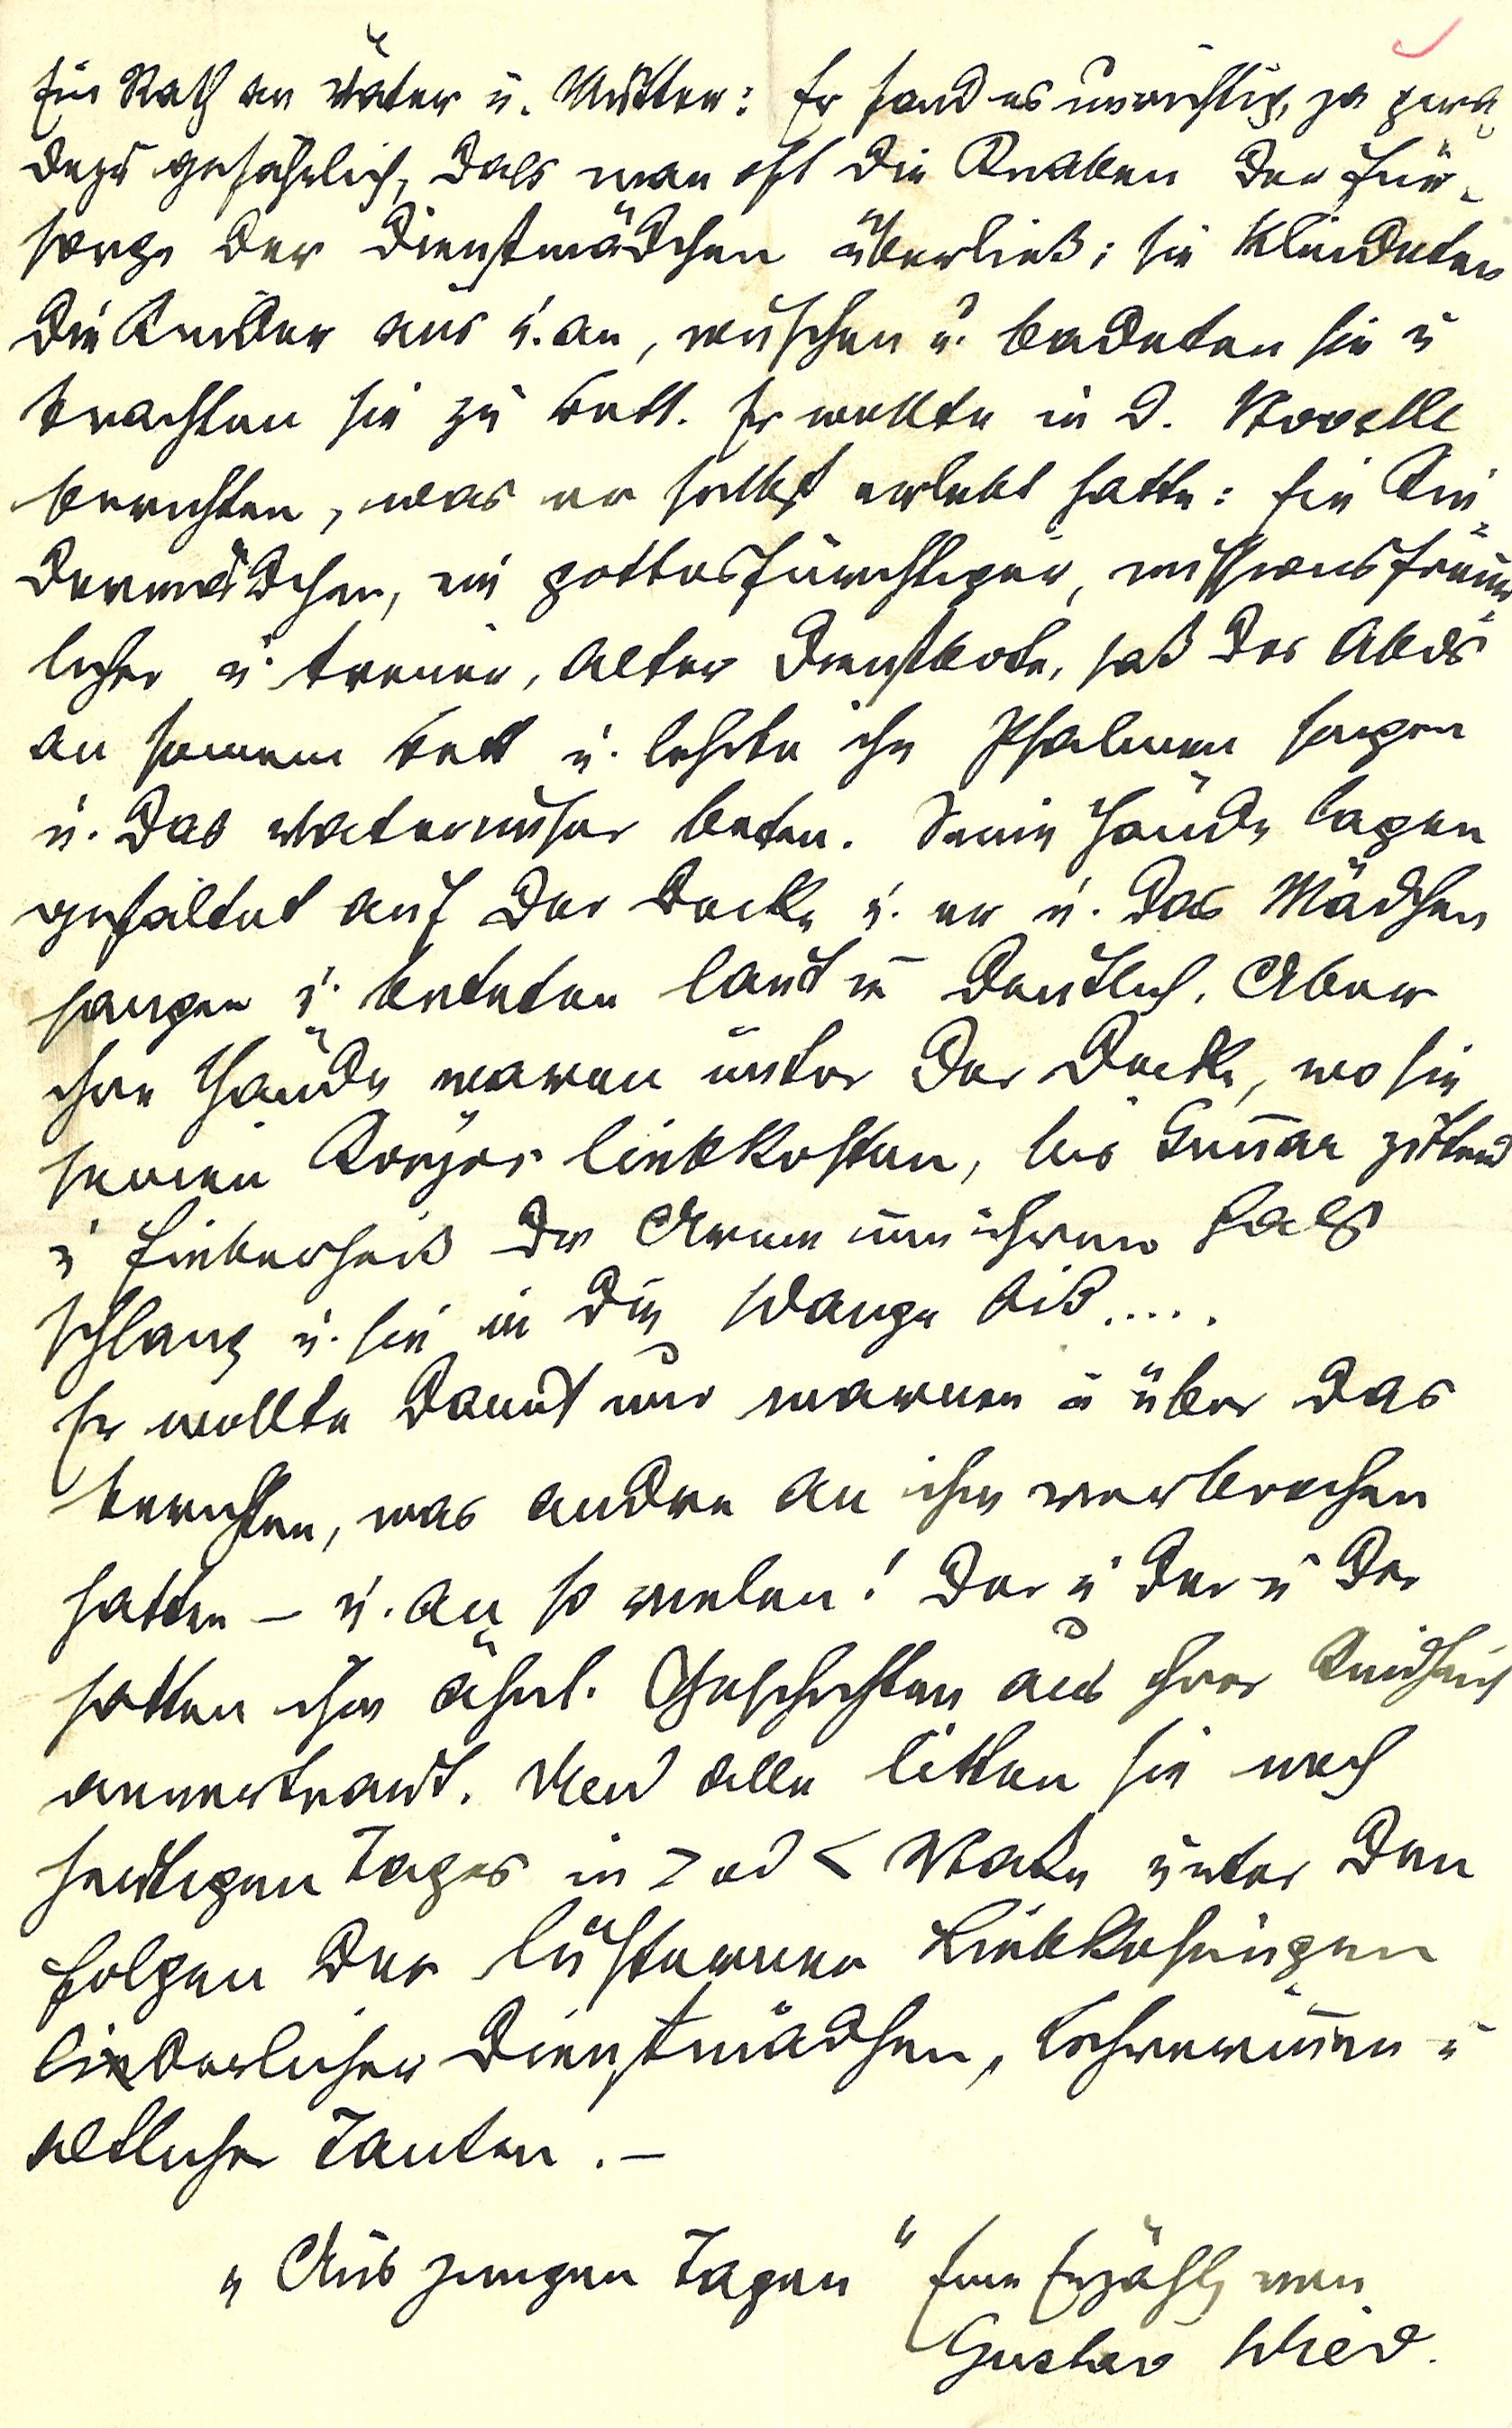 Ein Rath an Väter u. Mütter: Er fand es unrichtig, ja gera-
dezu gefährlich, dass man oft die Knaben der Für-
sorge der Dienstmädchen überließ; sie kleideten
die Kinder aus u. an, wuschen u. badeten sie u
brachten sie zu Bett. Er wollte in d. Novelle
berichten, was er selbst erlebt hatte: Ein Kin-
dermädchen, ein gottesfürchtiger, missionsfreund-
licher u. treuer, alter Dienstbote, saß des Abds
an seinem Bett u. lehrte ihn Psalmen singen
u. das Vaterunser beten. Seine Hände lagen
gefaltet auf der Decke u. er u. das Mädchen
sangen u. beteten laut u deutlich. Aber
ihre Hände waren unter der Decke, wo sie
seinen Körper liebkosten, bis Gunnar zitternd
u fieberheiß die Arme um ihren Hals
schlang u. sie in die Wange biß....
Er wollte damit nur warnen u über das
berichten, was andre an ihm verbrochen
hatten – u. an so vielen! Der u der u der
hatten ihm ähnl. Geschichten aus ihrer Kindheit
anvertraut. Und alle litten sie noch
heutigen Tages in > od < Maße unter den
Folgen der lüsternen Liebkosungen
liederlicher Dienstmädchen, Lehrerinnen u
ältlicher Tanten. –
„Aus jungen Tagen“ Eine Erzählg von
Gustav Wied.